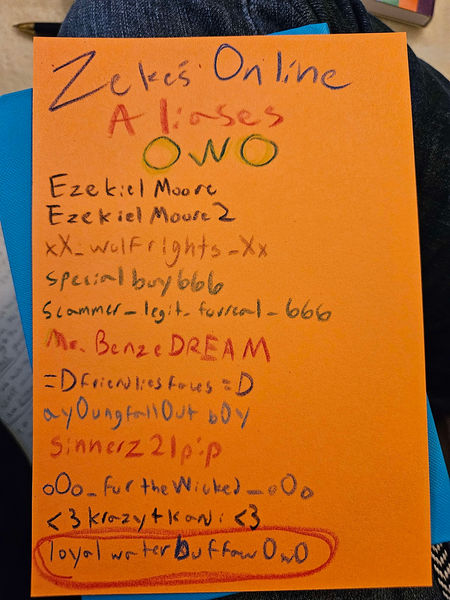 Zeke's Online
Aliases
OwO
Ezekiel Moore
Ezekiel Moore2
xX_wolfrights_Xx
specialboy666
scammer_legit_forreal_666
Mr. BenzeDREAM
=Dfriendliesfoues=D
ayOungfallOut bOy
Sinnerz21pip
oOo_fur theWicked_oOo
<3 krazy+kani <3
loyalwaterbuffawOwO